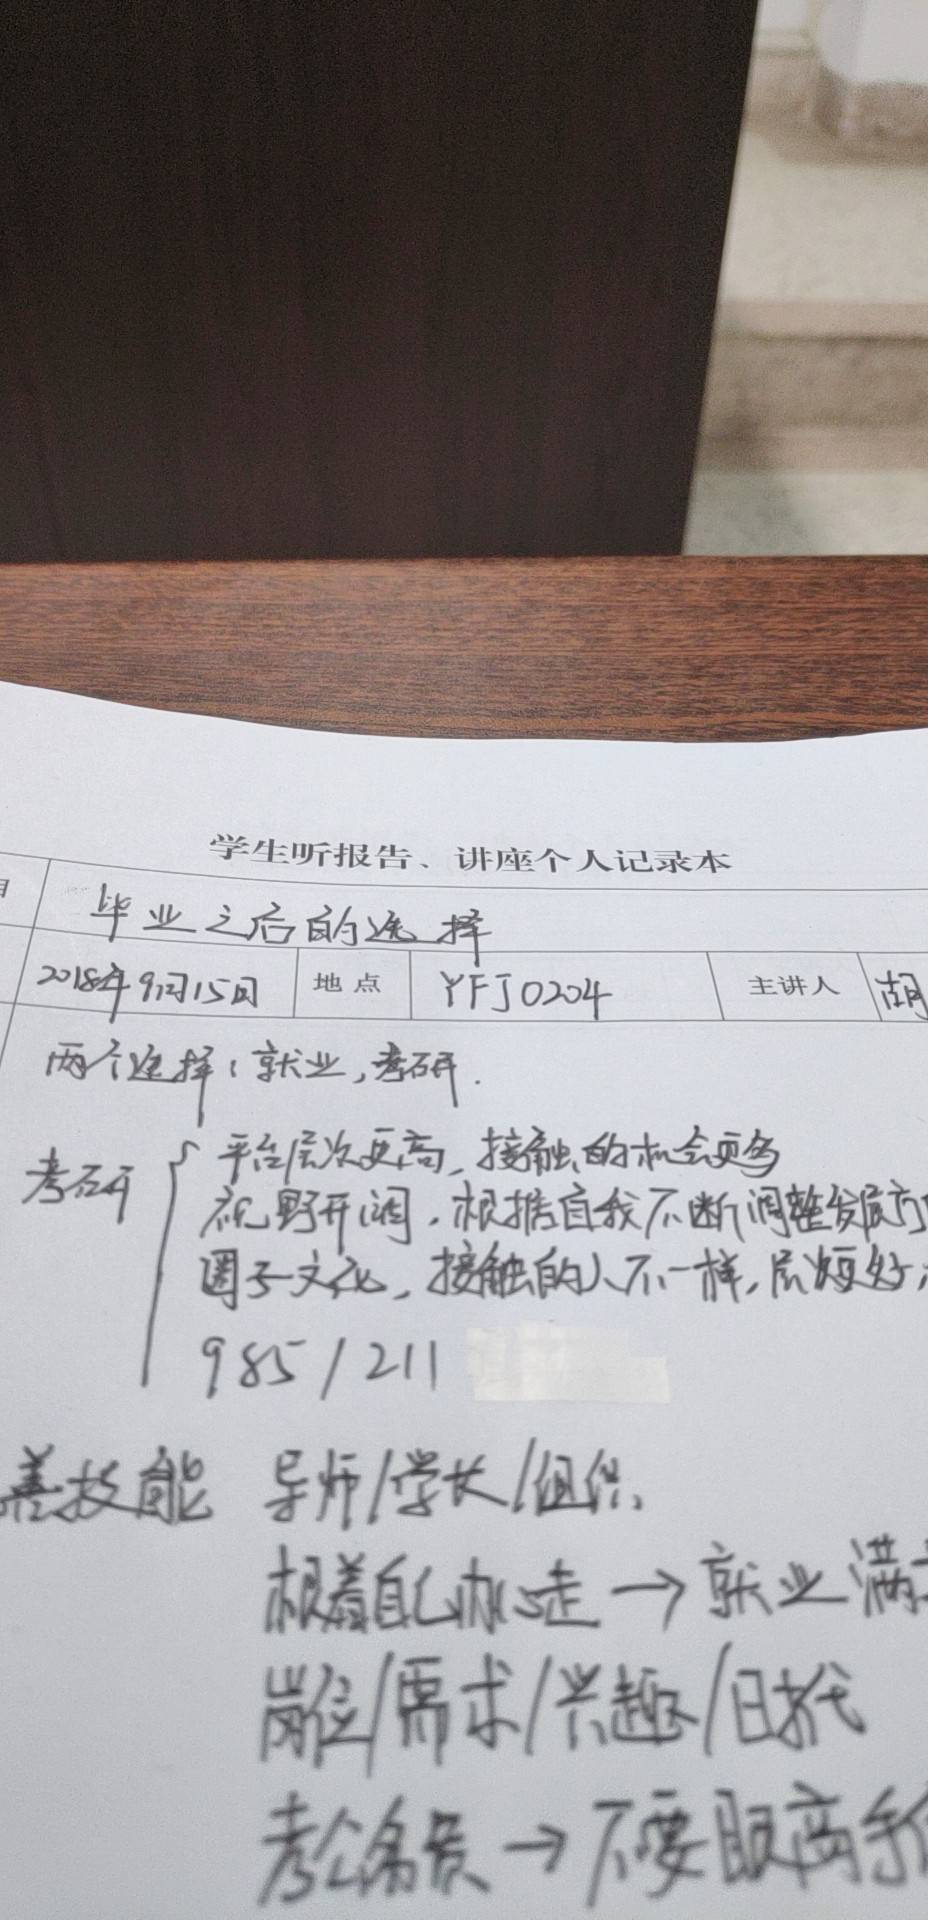 学生听报告、讲座个人记录本
毕业之后的选择
2018年9月15日 地点 YFJ0204 主讲人 胡
两个选择:就业,考研.
考研
平台层次更高,接触的机会更多
视野开阔,根据自我不断调整发展方
圈子文化,接触的人不一样,层次
985/211
善技能 导师/学长/组织
根着自己内心走→就业满
岗位/需求/兴趣/
考公务员→不要眼高手